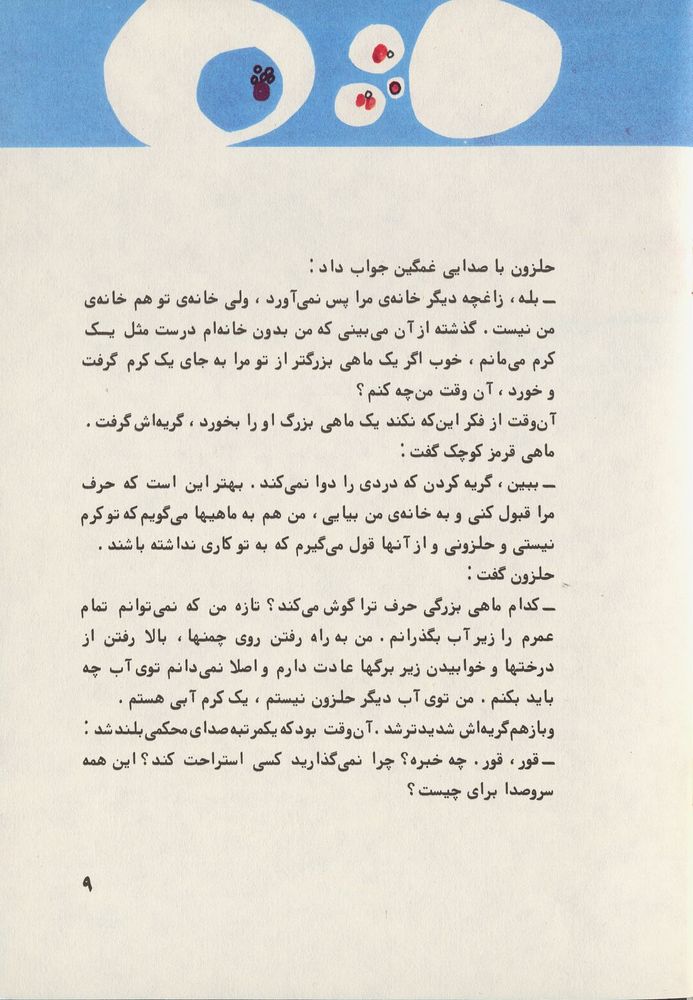 حلزون با صدایی غمگین جواب داد :
ــ بله ، زاغچه دیگر خانه‌ی مرا پس نمی‌آورد ، ولی خانه‌ی تو هم خانه‌ی
من نیست . گذشته از آن می‌بینی که من بدون خانه‌ام درست مثل یـک
کرم می‌مانم ، خوب اگر یک ماهی بزرگتر از تو مرا به جای یک کرم گرفت
و خورد ، آن وقت من‌چه کنم ؟
آن‌وقت از فکر این‌که نکند یک ماهی بزرگ او را بخورد ، گریه‌اش گرفت .
ماهی قرمز کوچک گفت :
ــ ببین ، گریه کردن که دردی را دوا نمی‌کند . بهتر این است که حرف
مرا قبول کنی و به خانه‌ی من بیایی ، من هم به ماهیها می‌گویم که تو کرم
نیستی و حلزونی و از آنها قول می‌گیرم که به تو کاری نداشته باشند .
حلزون گفت :
ــ کدام ماهی بزرگی حرف ترا گوش می‌کند ؟ تازه من که نمی‌توانم تمام
عمرم را زیر آب بگذرانم . من به راه رفتن روی چمنها ، بالا رفتن از
درختها و خوابیدن زیر برگها عادت دارم و اصلا نمی‌دانم توی آب چه
باید بکنم . من توی آب دیگر حلزون نیستم ، یک کرم آبی هستم .
و بازهم گریه‌اش شدیدتر شد . آن‌وقت بود که یکمرتبه صدای محکمی بلند شد :
ــ قور ، قور . چه خبره ؟ چرا نمی‌گذارید کسی استراحت کند ؟ این همه
سروصدا برای چیست ؟
۹